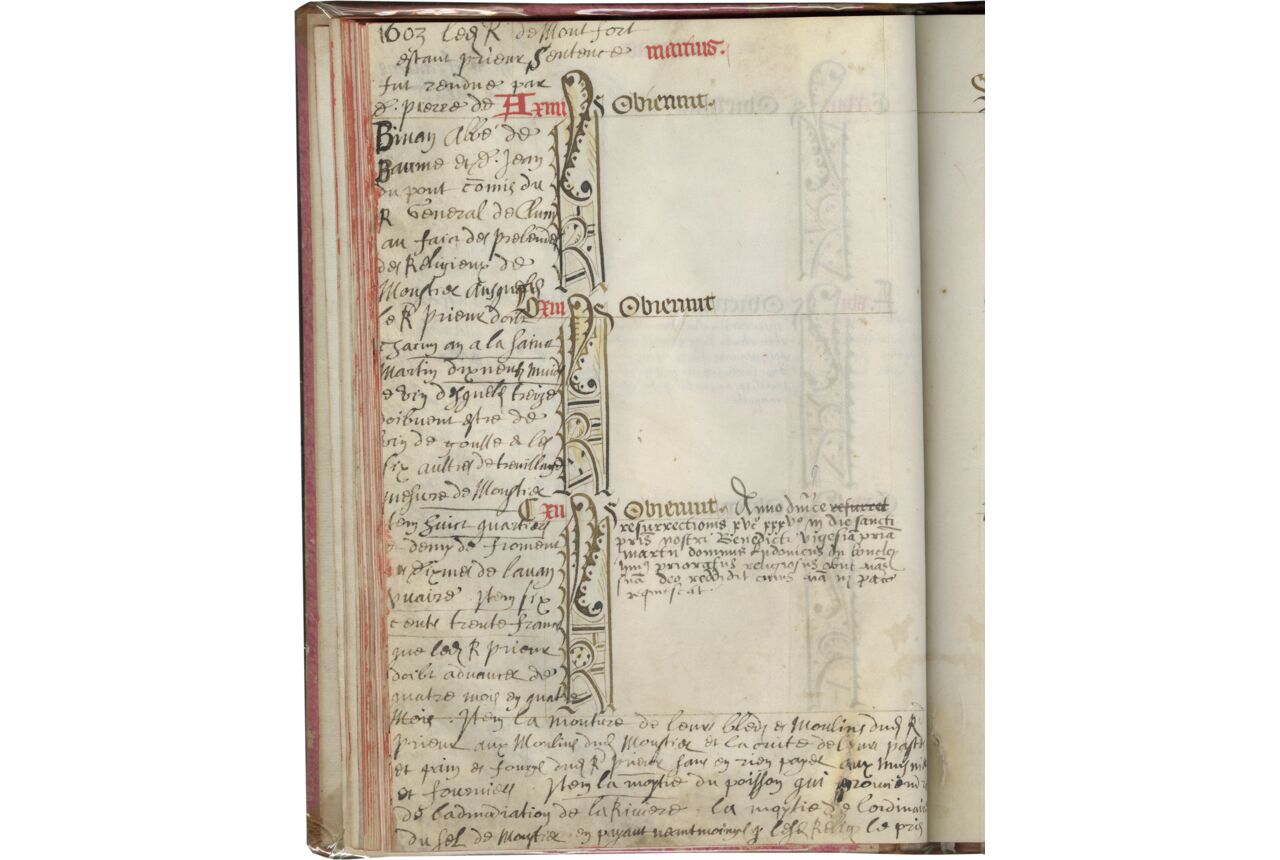 1603 led R de Mont fort
estant prieur Sentence
fut rendue par
d. pierre de
Binan Abbé de
Baume et d. Jean
du pont comis du
R General de Cluny
au faict des prebendes
des Religieux de
Moustier Ausquels
le R Prieur doibt
chacun an a la saint
Martin dixneuf muids
de vin desquels treize
doibvent estre de
vin de goulle & les
six aultres de treuillage
mesure de Moustier
Item huict quartiers
& demy de froment
dixmes de lauan
Item six
cents trente francs
que led R prieur
doibt advancer de
quatre mois en quatre
Mois. Item la mouture de leurs bleds es Moulins dud R
Prieur aux Moulins dud Moustier et la cuite de leurs paste
et pain es fours dud R Prieur sans en rien payer aux
et fourniers. Item la moytie du poisson qui provient
de l'admodiation de la Riviere. la moytie de l'ordinaire
du sel de Moustier en payant neantmoings led le pris
martius.
A xiiii S Obierunt.
b xiii S Obierunt
C xii S Obierunt. Anno dnice resurrect
resurrectionis xvc xxxvo in die sancti
pris nostri Benedicti vigesia pria
martii dominus ludovicus du
prioratus religiosus obiit
suam deo reddidit cuius in pace
requiescat